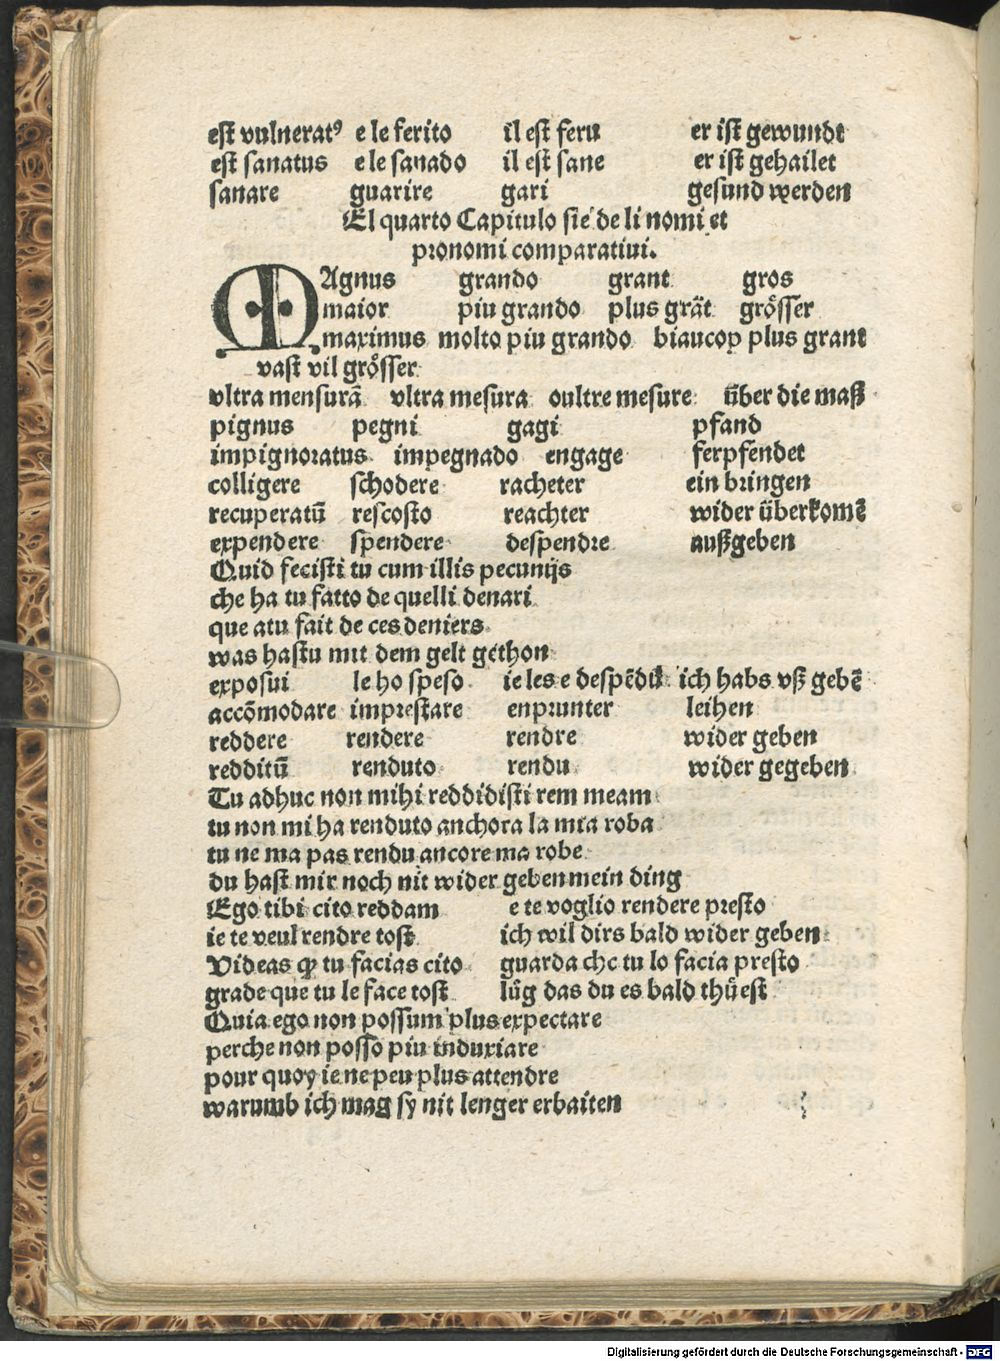 est vulneratꝰ e le ferito il est feru er ist gewundt
est sanatus e le sanado il est sane er ist gehailet
sanare guarire gari gesund werden
El quarto Capitulo sie de li nomi et
pronomi comparatiui.
MAgnus grando grant gros
maior piu grando plus grãt grösser
maximus molto piu grando biaucop plus grant
vast vil grösser
vltra mensurã vltra mesura oultre mesure über die maß
pignus pegni gagi pfand
impignoratus impegnado engage ferpfendet
colligere schodere racheter ein bringen
recuperatũ rescosto reachter wider überkomẽ
expendere spendere despendre außgeben
Quid fecisti tu cum illis pecunijs
che ha tu fatto de quelli denari
que atu fait de ces deniers
was hastu mit dem gelt gethon
exposui le ho speso ie les e despẽdu ich habs vß gebẽ
accõmodare imprestare enprunter leihen
reddere rendere rendre wider geben
redditũ renduto rendu wider gegeben
Tu adhuc non mihi reddidisti rem meam
tu non mi ha renduto anchora la mia roba
tu ne ma pas rendu ancore ma robe
du hast mir noch nit wider geben mein ding
Ego tibi cito reddam e te voglio rendere presto
ie te veul rendre tost ich wil dirs bald wider geben
Videas ꝙ tu facias cito guarda che tu lo facia presto
grade que tu le face tost lůg das du es bald thüest
Quia ego non possum plus expectare
perche non posso piu induxiare
pour quoy ie ne peu plus attendre
warumb ich mag sy nit lenger erbaiten
Digitalisierung gefördert durch die Deutsche Forschungsgemeinschaft - DFG